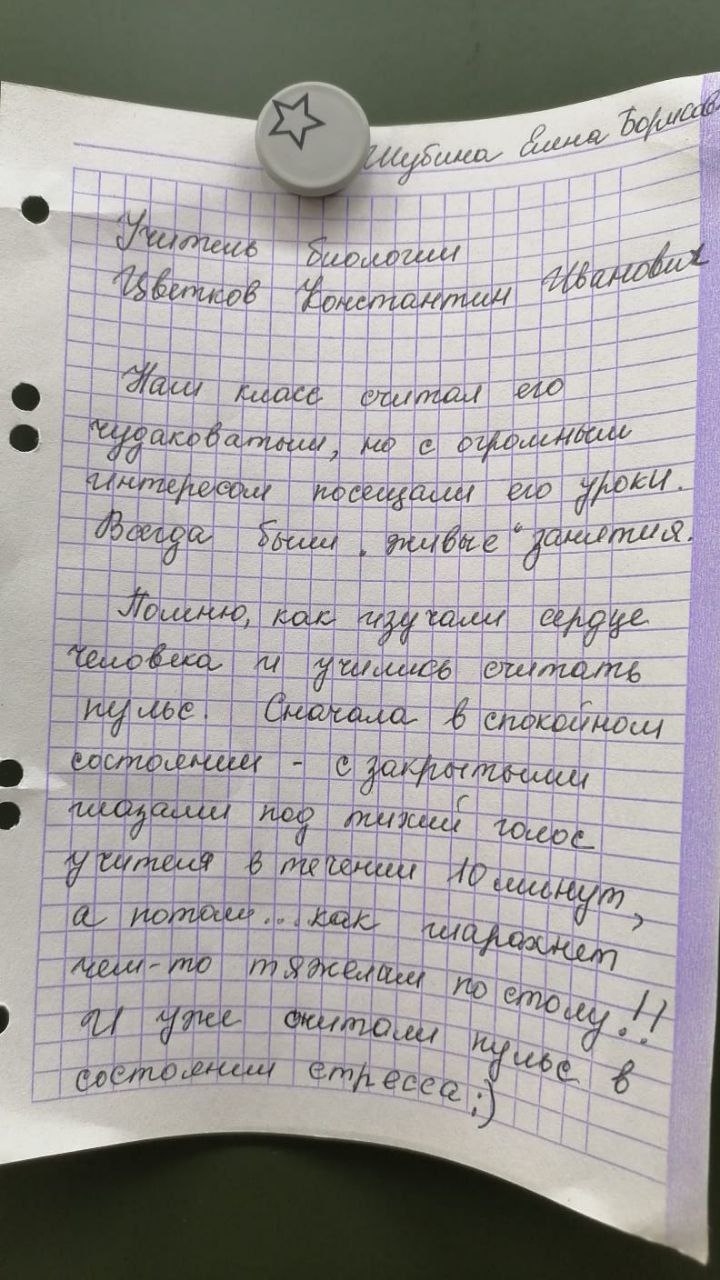 Шубина Елена Борисов
Учитель биологии
Цветков Константин Иванович
Наш класс считал его
чудаковатым, но с огромным
интересом посещали его уроки.
Всегда были „живые“ занятия.
Помню, как изучали сердце
человека и учились считать
пульс. Сначала в спокойном
состоянии - с закрытыми
глазами под тихий голос
учителя в течении 10 минут,
а потом... как шарахнет
чем-то тяжелым по столу!!
И уже считали пульс в
состоянии стресса;)